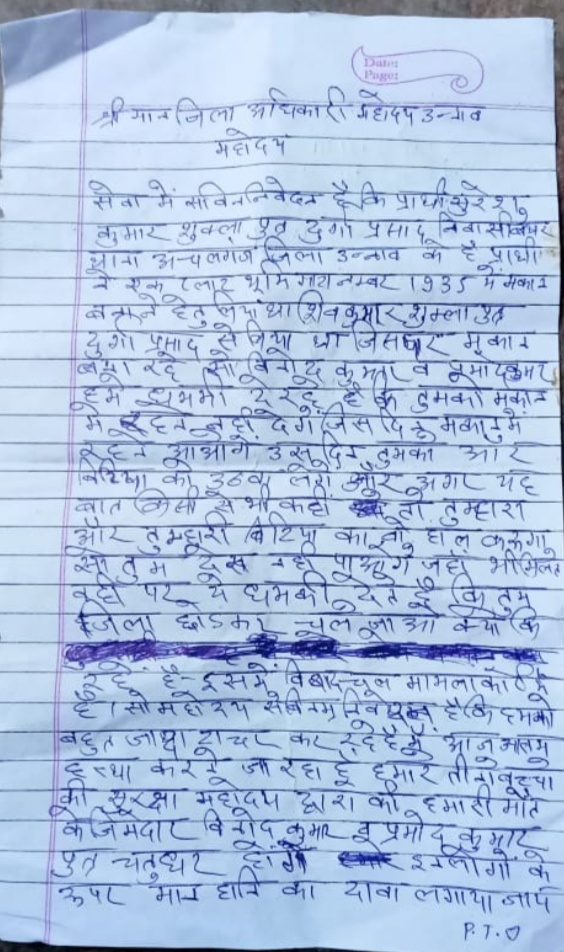 Date:
Page:
श्री मान जिला अधिकारी महोदय उन्नाव
महोदय
सेवा में सविननिवेदन है कि प्रार्थी सुरेश
कुमार शुक्ला पुत्र दुर्गा प्रसाद निवासी
थाना अचलगंज जिला उन्नाव के है प्रार्थी
ने एक प्लाट भूमि गाटा नम्बर 1935 में मकान
बनाने हेतु लिया था शिव कुमार शुक्ला पुत्र
दुर्गा प्रसाद से लिया था जिसपर मकान
बना रहे सो विनोद कुमार व प्रमोद कुमार
हमे धमकी दे रहे है कि तुमको मकान
मे रहने नही देंगे जिस दिन मकान में
रहने आओगे उस दिन तुमका और
बिटिया को उठवा लेंगे और अगर यह
बात किसी से भी कही तो तुम्हारा
और तुम्हारी बिटिया का वो हाल करूंगा
सो तुम देख नही पाओगे जहाँ भी मिलत
वही पर ये धमकी देते है कि तुम
जिला छोडकर चले जाओ क्यो कि
रहे है - इसमें मामला का
है। सो महोदय से विनम्र निवेदन है कि हमको
बहुत जादा टाचर कर रहे है मै आज आत्म
हत्या करने जा रहा हू हमारे तीनो बच्चा
की सुरक्षा महोदय द्वारा की हमारी मौत
के जिमदार विनोद कुमार व प्रमोद कुमार
पुत्र चतुधर होगे इनलोगों के
ऊपर मान हानि का दावा लगाया जाय
P.T.O